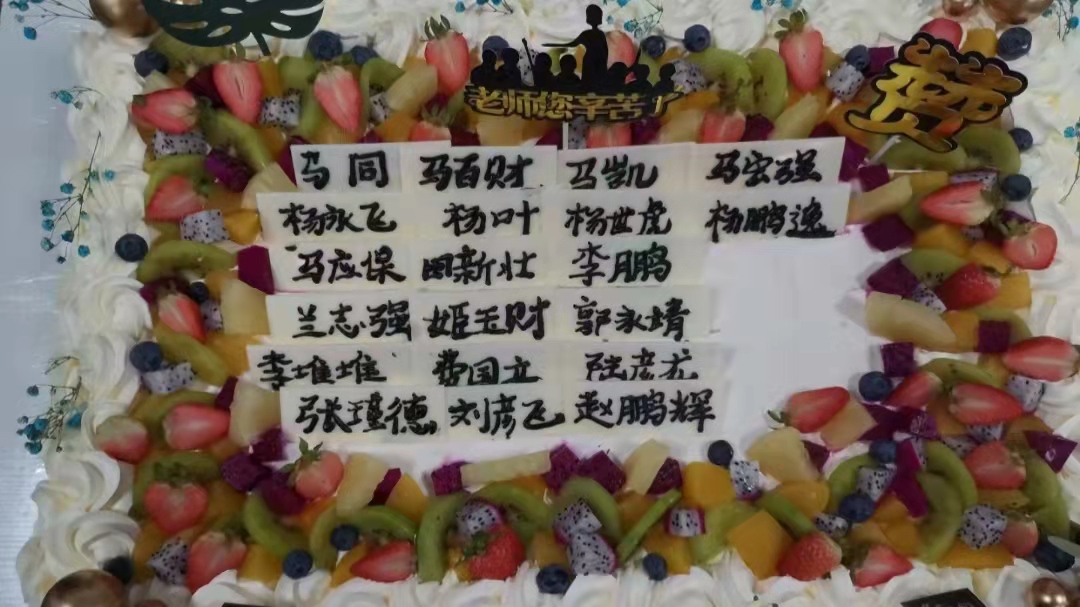 老师您辛苦了
马同 马百财 马凯 马宏强
杨永飞 杨叶 杨世虎 杨鹏逸
马应保 田新壮 李鹏
兰志强 姬玉财 郭永靖
李堆堆 费国立 陆彦尤
张瑾德 刘彦飞 赵鹏辉